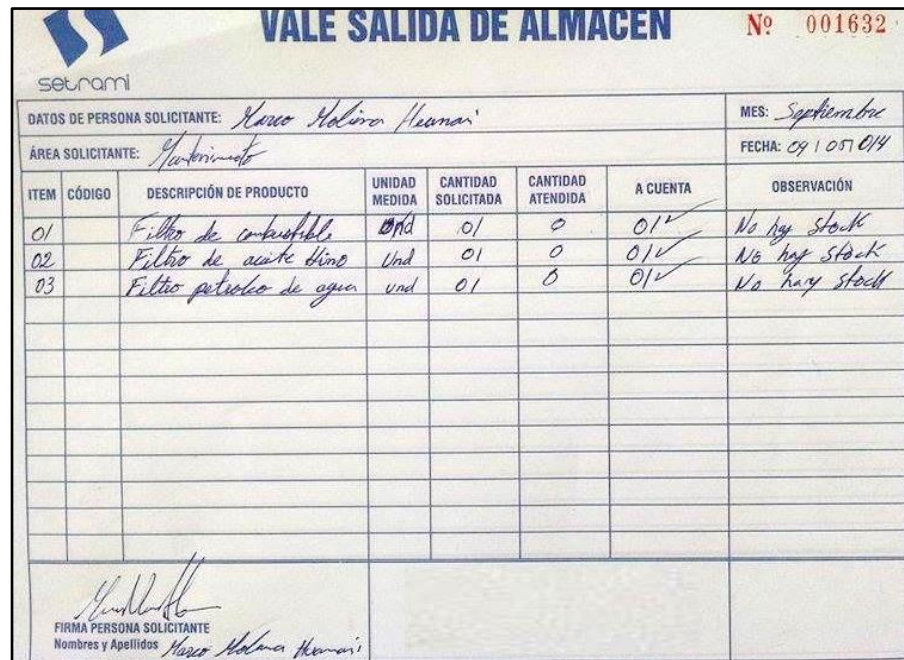 VALE SALIDA DE ALMACEN
Nº 001632
setrami
DATOS DE PERSONA SOLICITANTE: Marco Molina Huamaní
MES: Septiembre
ÁREA SOLICITANTE: Mantenimiento
FECHA: 09 / 05 / 014
ITEM CÓDIGO DESCRIPCIÓN DE PRODUCTO UNIDAD MEDIDA CANTIDAD SOLICITADA CANTIDAD ATENDIDA A CUENTA OBSERVACIÓN
01 Filtro de combustible und 01 0 01 ✓ No hay stock
02 Filtro de aceite Hino Und 01 0 01 ✓ No hay stock
03 Filtro petroleo de agua und 01 0 01 ✓ No hay stock
FIRMA PERSONA SOLICITANTE
Nombres y Apellidos Marco Molina Huamaní